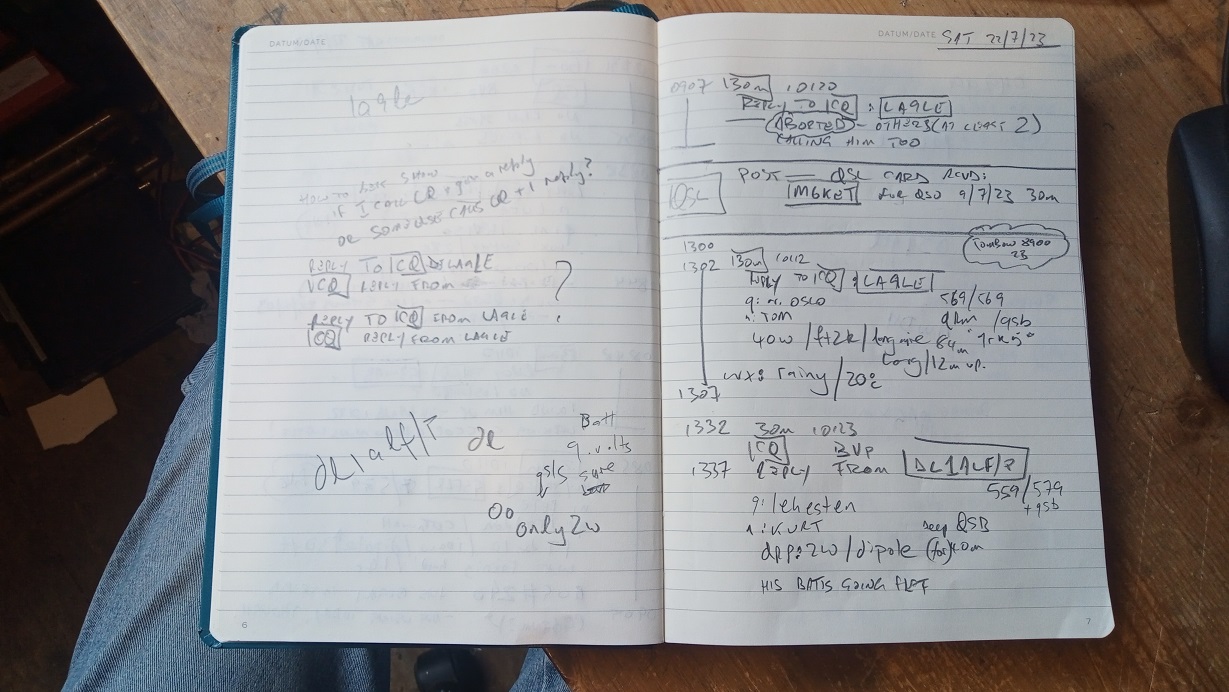 DATUM/DATE
la9le
HOW TO LOG SHOW
IF I CALL CQ + gain a reply
OR SOMEONE CALLS CQ + I reply?
REPLY TO CQ DE LA9LE
CQ REPLY FROM
?
REPLY TO CQ FROM LA9LE
CQ REPLY FROM LA9LE
de
Batt
9. volts
qsls sure
OO
only 2w
6
DATUM/DATE SAT 22/7/23
0907 30m 10120
REPLY TO CQ : LA9LE
ABORTED - OTHERS (AT LEAST 2)
CALLING HIM TOO
QSL
POST QSL CARD RCVD:
M6KET for QSO 9/7/23 30m
TomBow 8900
23
1300
1302 30m 10112
REPLY TO CQ : LA9LE
q: nr. OSLO 569/569
n: TOM qrm /qsb
40w /ft2k /long wire 84m
long/12m up.
wx: rainy /20c
1307
1332 30m 10123
CQ
1337 REPLY FROM DL1ALF/P
559/579
+ qsb
q: lehesten
n: KURT deep QSB
qrp: 2w /dipole (for)
HIS BATTS GOING FLAT
7